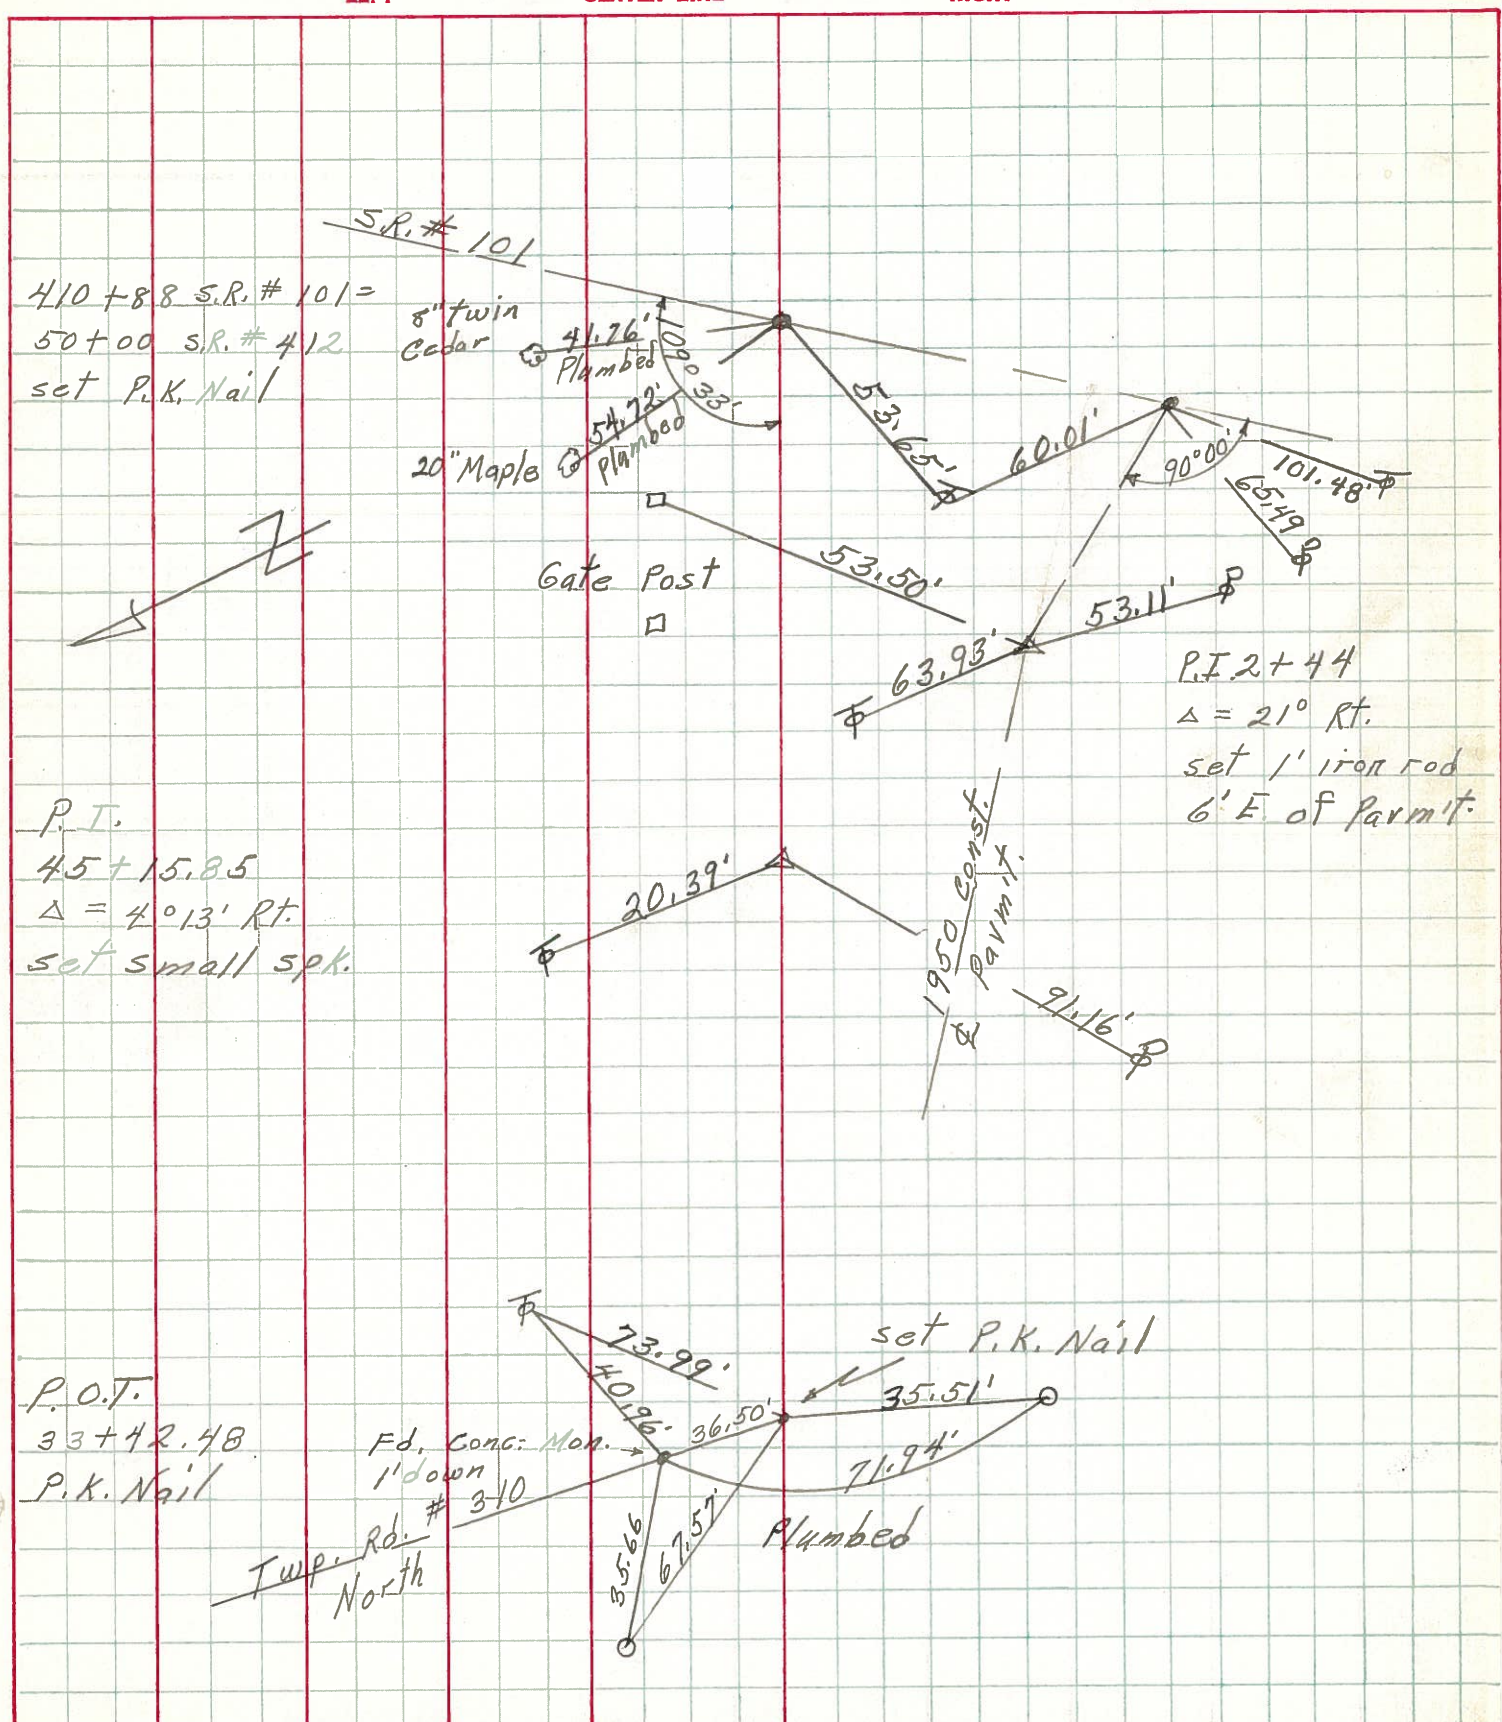 S.R. # 101
410+88 S.R. # 101 =
50+00 S.R. # 412
set P.K. Nail
8" twin
Cedar
41.76'
Plumbed
109° 33'
54.72'
Plumbed
20" Maple
53.65'
60.01'
90°00'
101.48'
65.49
Gate Post
53.50'
53.11'
63.93'
P.I. 2+44
Δ = 21° Rt.
set 1' iron rod
6' E. of Parm't.
P.I.
45+15.85
Δ = 4°13' Rt.
set small spk.
20.39'
℄ 1950 Const.
Parm't.
91.16'
73.99'
40.96'
set P.K. Nail
35.51'
36.50'
71.94'
P.O.T.
33+42.48
P.K. Nail
Fd. Conc. Mon.
1' down
Twp. Rd. # 310
North
35.66
67.57'
Plumbed